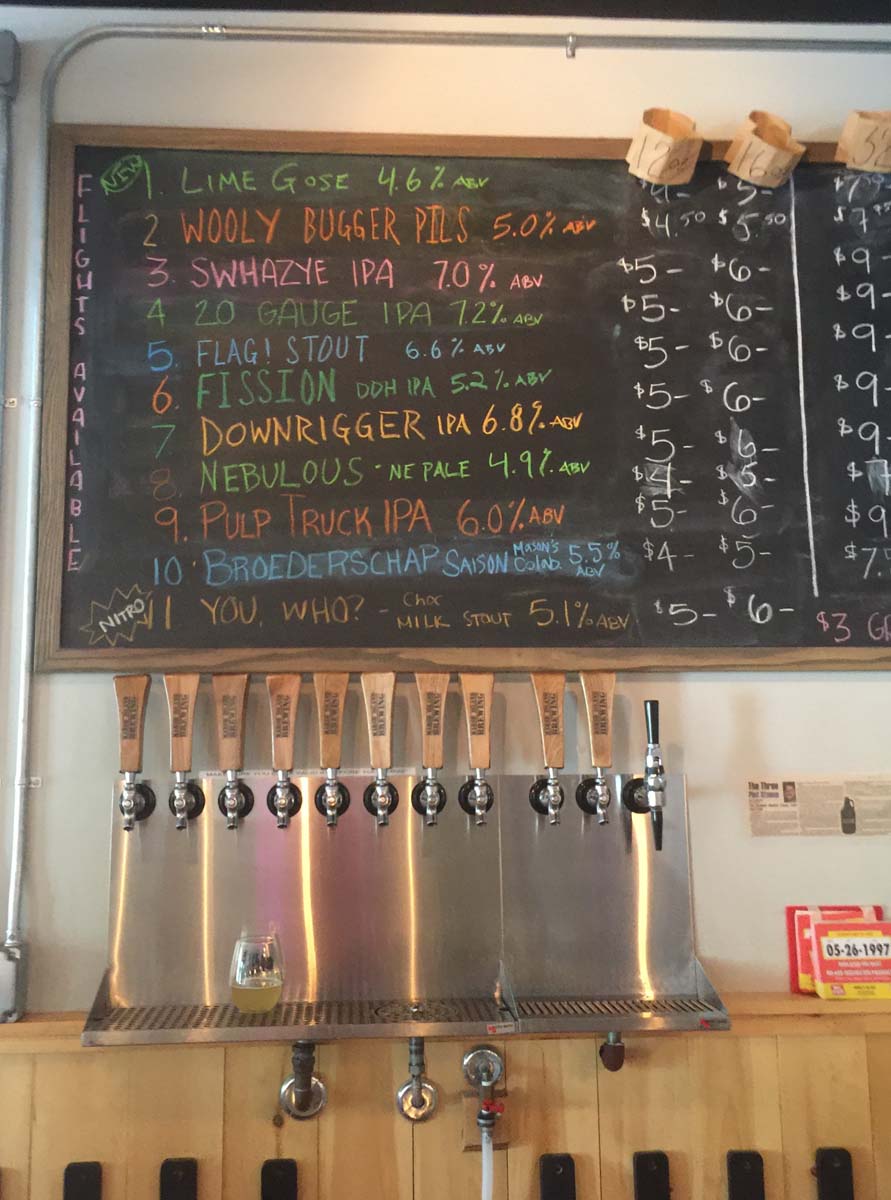 12oz 16oz 32
FLIGHTS AVAILABLE
NEW 1. LIME GOSE 4.6% ABV $4- $5- $7
2 WOOLY BUGGER PILS 5.0% ABV $4.50 $5.50 $7
3. SWHAZYE IPA 7.0% ABV $5- $6- $9-
4 20 GAUGE IPA 7.2% ABV $5- $6- $9-
5. FLAG! STOUT 6.6% ABV $5- $6- $9-
6. FISSION DDH IPA 5.2% ABV $5- $6- $9-
7 DOWNRIGGER IPA 6.8% ABV $5- $6- $9-
8. NEBULOUS · NE PALE 4.9% ABV $4- $5- $7
9. PULP TRUCK IPA 6.0% ABV $5- $6- $9
10 · BROEDERSCHAP SAISON MASON'S COLAB. 5.5% ABV $4- $5- $7.
NITRO 11 YOU, WHO? - CHOC MILK STOUT 5.1% ABV $5- $6-
$3 G
BREWING
The Three
05-26-1997